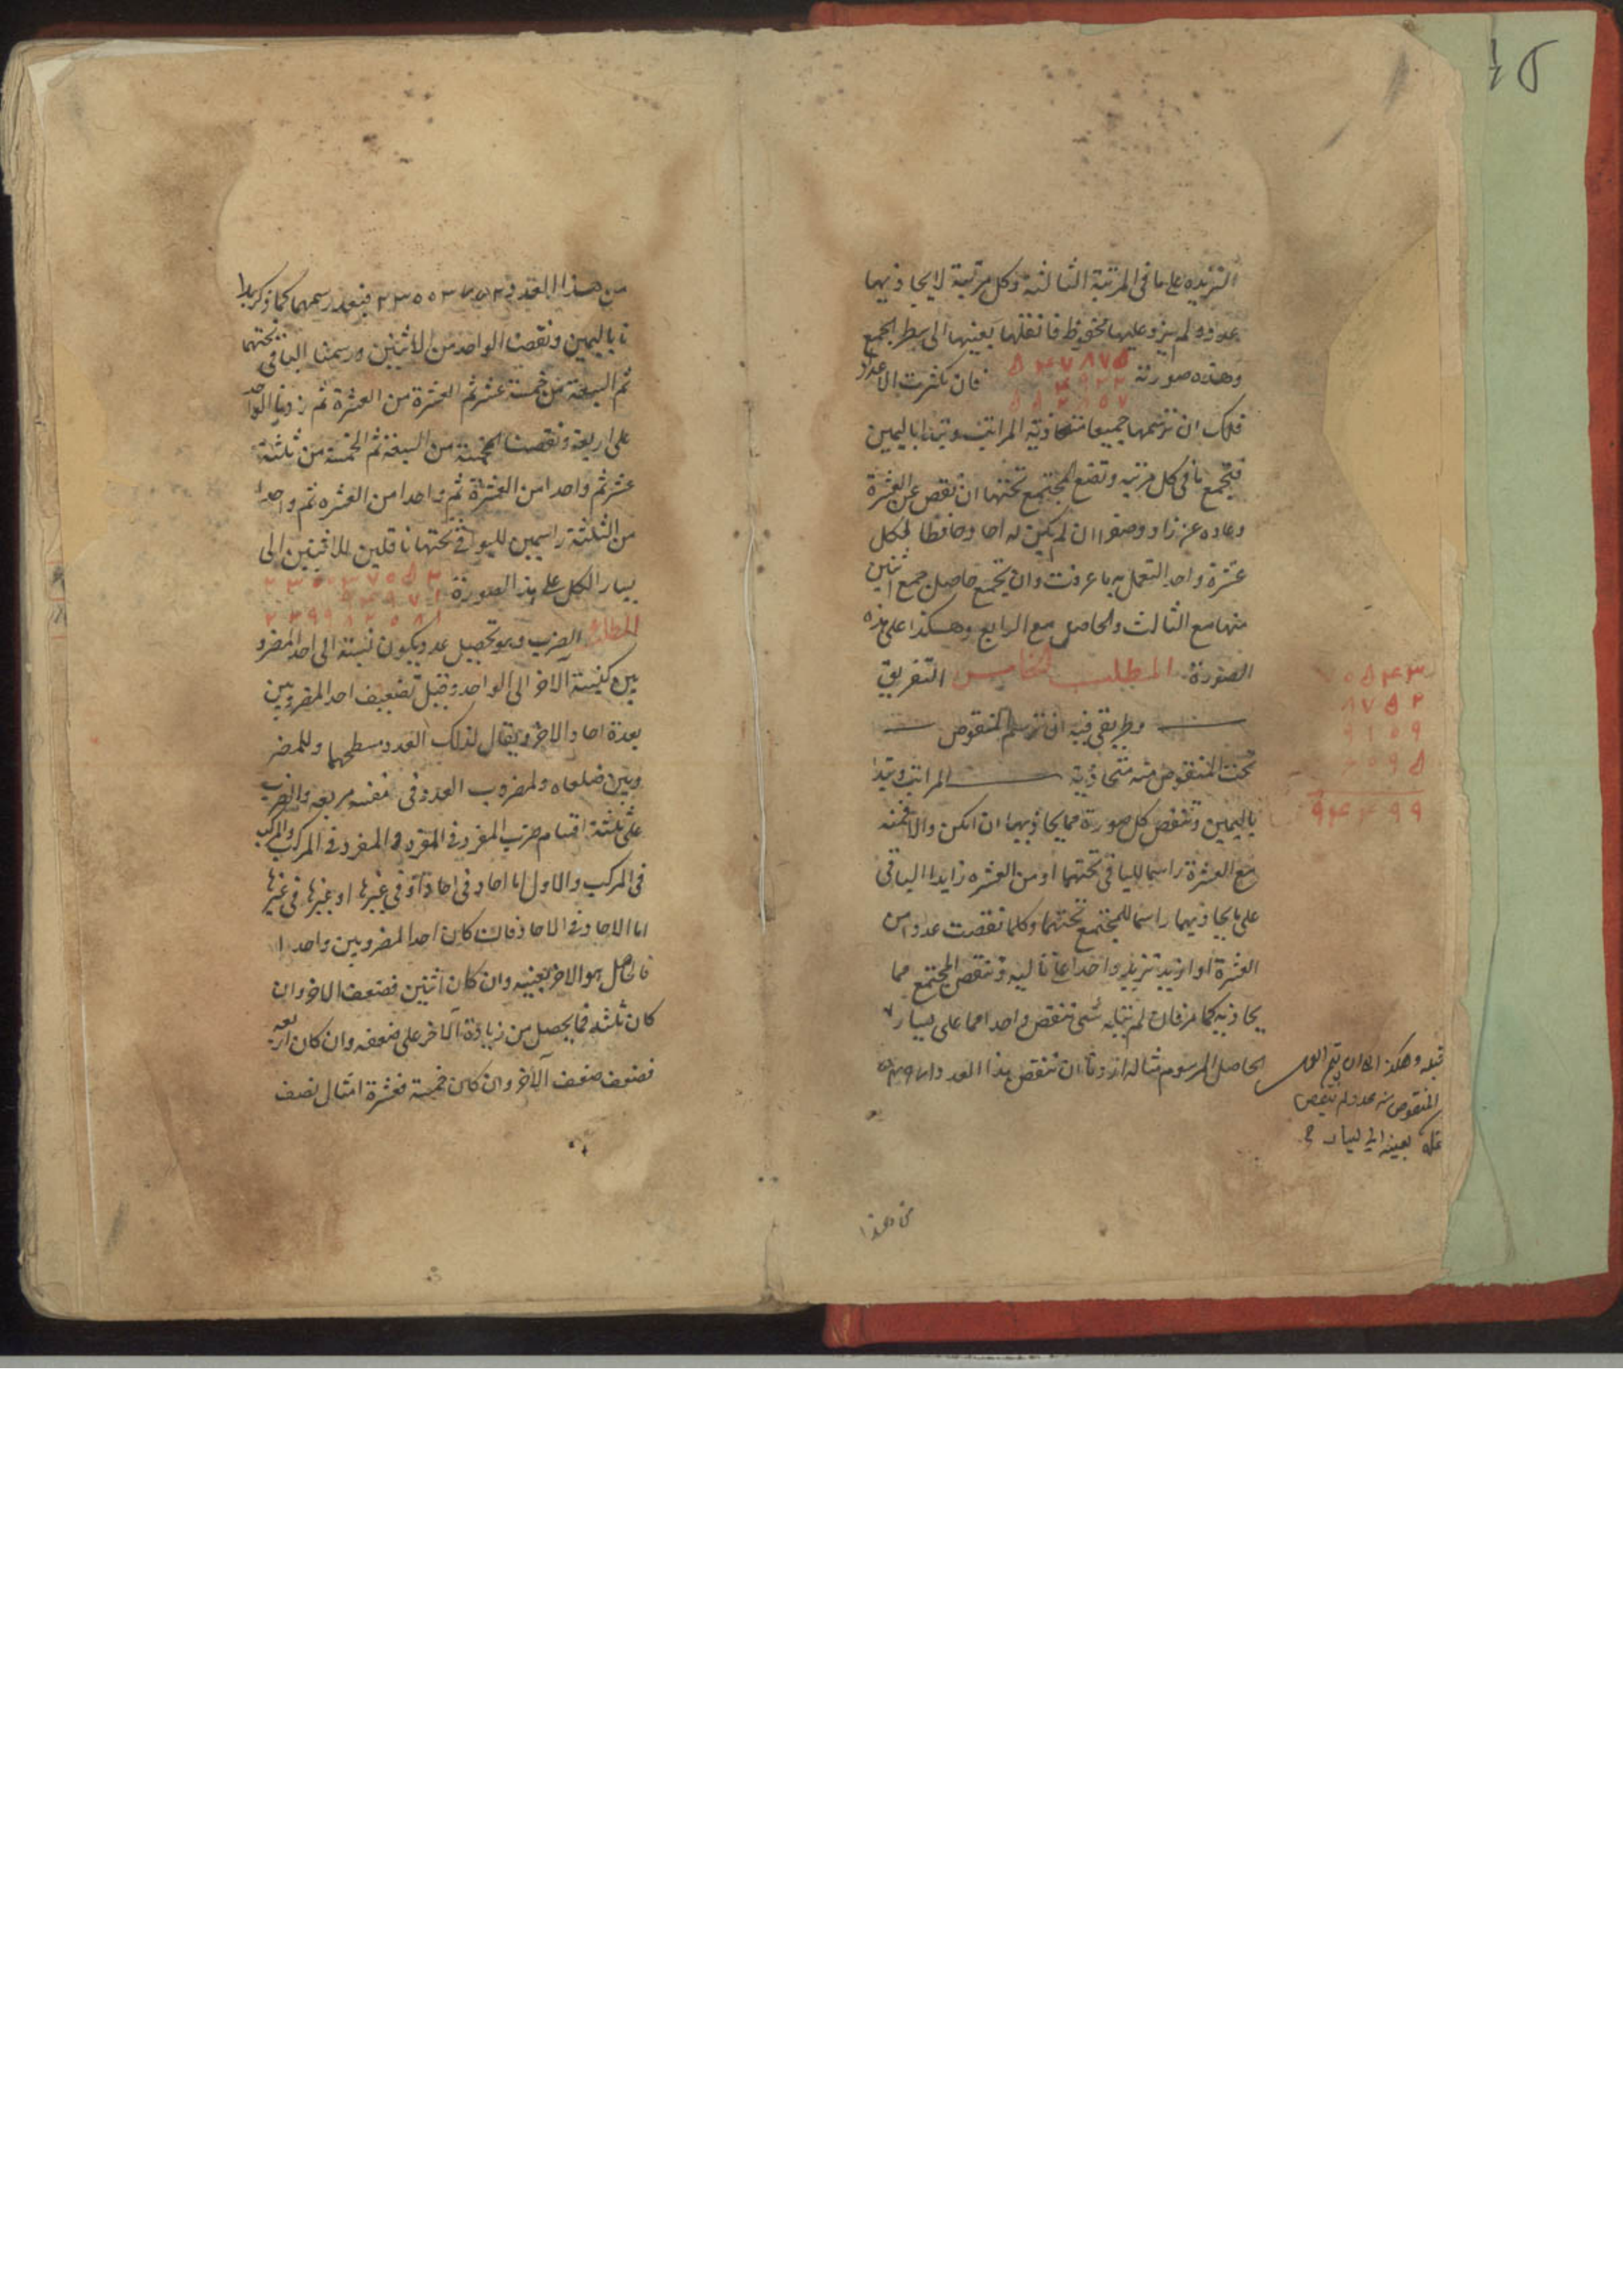 لتزيده على ما فى المرتبة الثالثة وكل مرتبة لا يحاذيها
عدد ولم يزد عليها محفوظ فانقلها بعينها الى سطر الجمع
وهذه صورته فان كثرت الاعداد
فلك ان ترسمها جميعا متحاذية المراتب وتبدا باليمين
فتجمع ما فى كل مرتبة وتضع المجتمع تحتها ان نقص عن العشرة
وصفرا ان لم يكن له احاد وحافظا لكل
عشرة واحدا لتعمل به ما عرفت وان تجمع حاصل جمع اثنين
منها مع الثالث والحاصل مع الرابع وهكذا على هذه
الصورة المطلب الخامس التفريق
وطريقى فيه ان ترسم المنقوص
تحت المنقوص منه متحاذية المراتب وتبدا
باليمين وتنقص كل صورة مما يحاذيها ان امكن والا فمنه
مع العشرة راسما للباقى تحتهما او من العشره زايدا الباقى
على ما يحاذيهما راسما للمجتمع تحتهما وكلما نقصت عددا من
العشرة او ازيد تزيد واحدا على تاليه وتنقص المجتمع مما
يحاذيه كما مر فان لم يتله شى تنقص واحدا مما على يسار
الحاصل المرسوم مثاله اردنا ان تنقص هذا العدد
٩٩
قبله وهكذا الى ان يتم العمل
المنقوص منه عدد لم ينقص
بعينه الى اليسار
من هذا العدد ٢٣٥٥٣٧٥٢ فبعد رسمهما كما ذكر بدا
نا باليمين ونقصنا الواحد من الاثنين ورسمنا الباقى تحتهما
ثم السبعة من خمسة عشر ثم العشرة من العشرة ثم زدنا الواحد
على اربعة ونقصنا الخمسة من السبعة ثم الخمسة من ثلثة
عشر ثم واحدا من العشرة ثم واحدا من العشره ثم واحدا
من الثلثة راسمين للبواقى تحتها ناقلين للاثنين الى
يسار الكل على هذه الصورة
المطلب الضرب وهو تحصيل عدد يكون نسبته الى احد المضرو
بين كنسبة الآخر الى الواحد وقيل تضعيف احد المضروبين
بعدة احاد الاخر ويقال لذلك العدد مسطحهما وللمضر
وبين ضلعاه ولمضروب العدد فى نفسه مربعه والضرب
على ثلثة اقسام ضرب المفرد فى المفرد والمفرد فى المركب والمركب
فى المركب والاول اما احاد فى احاد او فى غيرها او غيرها فى غيرها
اما الاحاد فى الاحاد فان كان احد المضروبين واحدا
فالحاصل هو الاخر بعينه وان كان اثنين فضعف الاخر وان
كان ثلثه فما يحصل من زيادة الآخر على ضعفه وان كان اربعه
فضعف ضعف الآخر وان كان خمسة فعشرة امثال نصف